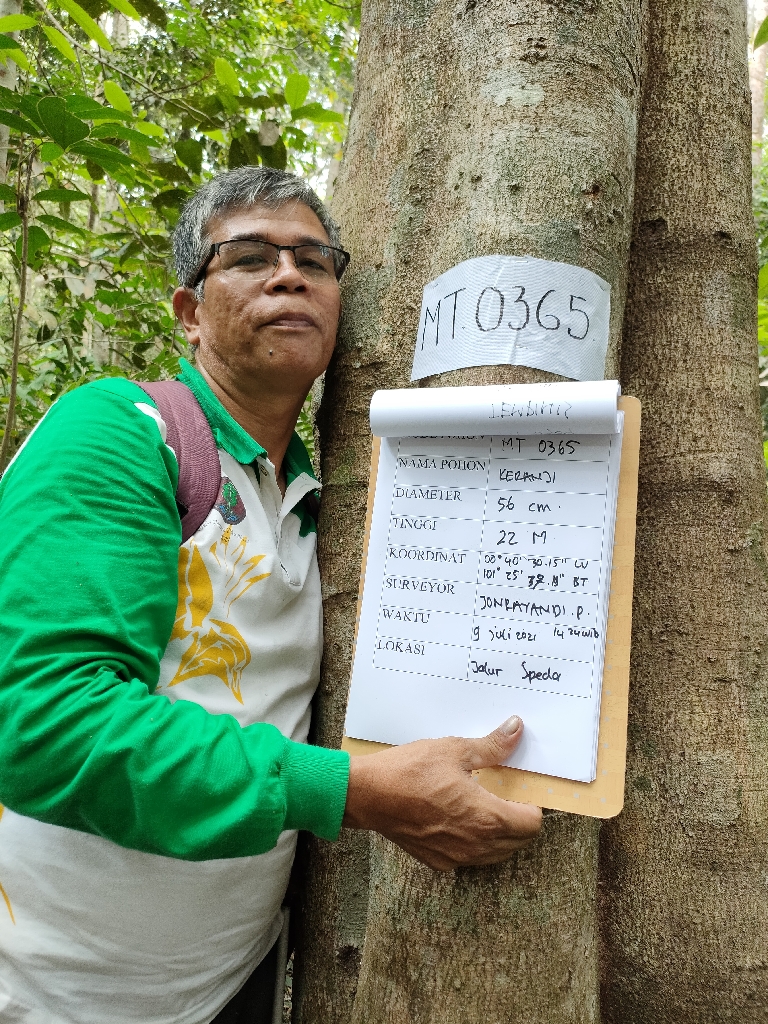 MT. 0365.
MT 0365
NAMA POHON KERANJI
DIAMETER 56 cm.
TINGGI 22 M.
KOORDINAT 00° 40" 30.15" LU
101° 25" BT
SURVEYOR JONRAYANDI.P.
WAKTU 9 Juli 2021 14.24 WIB
LOKASI Jalur Speda